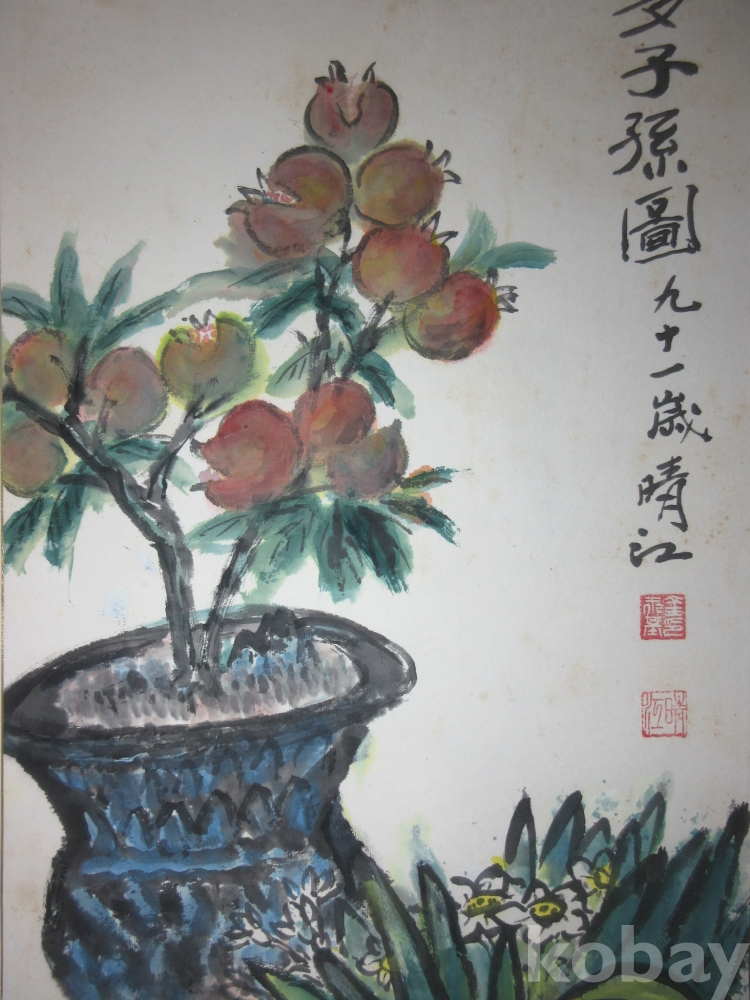 多子孫圖
九十一歲晴江
晴江
kobay